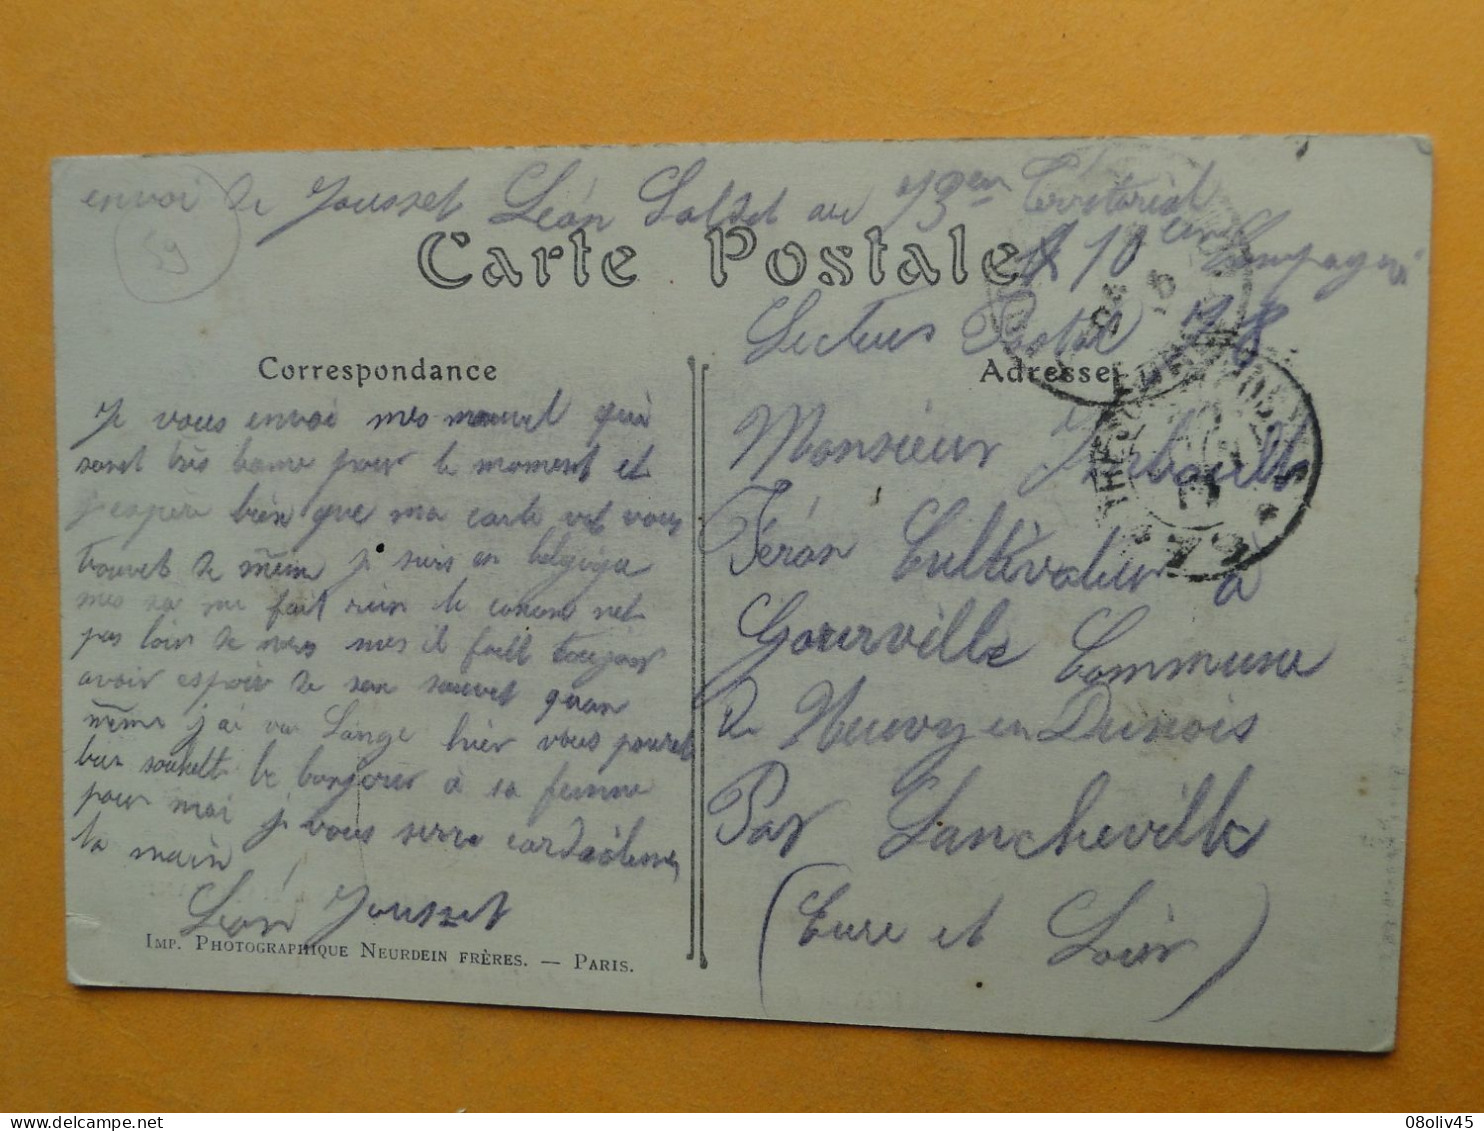 envoi de Jousset Léon Soldat au 73em Territorial
59
Carte Postale
10em Compagni
Secteur Postal 128
Correspondance
Adresse
Je vous envoi mes nouvel qui
sont très bonne pour le moment et
j'espère bien que ma carte vet vous
trouvet de mêm je suis en belgique
mes sa ne fait rien le conon net
pas loin de nous mes il fall toujour
avoir espoir de son sauvet quan
même j'ai vu Lange hier vous pouret
bien souhett le bonjour à sa femme
pour moi je vous serre cordialemen
la main
Léon Jousset
Monsieur
Féron Cultivateur a
Gourville Commune
de Neuvy en Dunois
Par Sancheville
(Eure et Loir)
IMP. PHOTOGRAPHIQUE NEURDEIN FRÈRES. — PARIS.
08oliv45